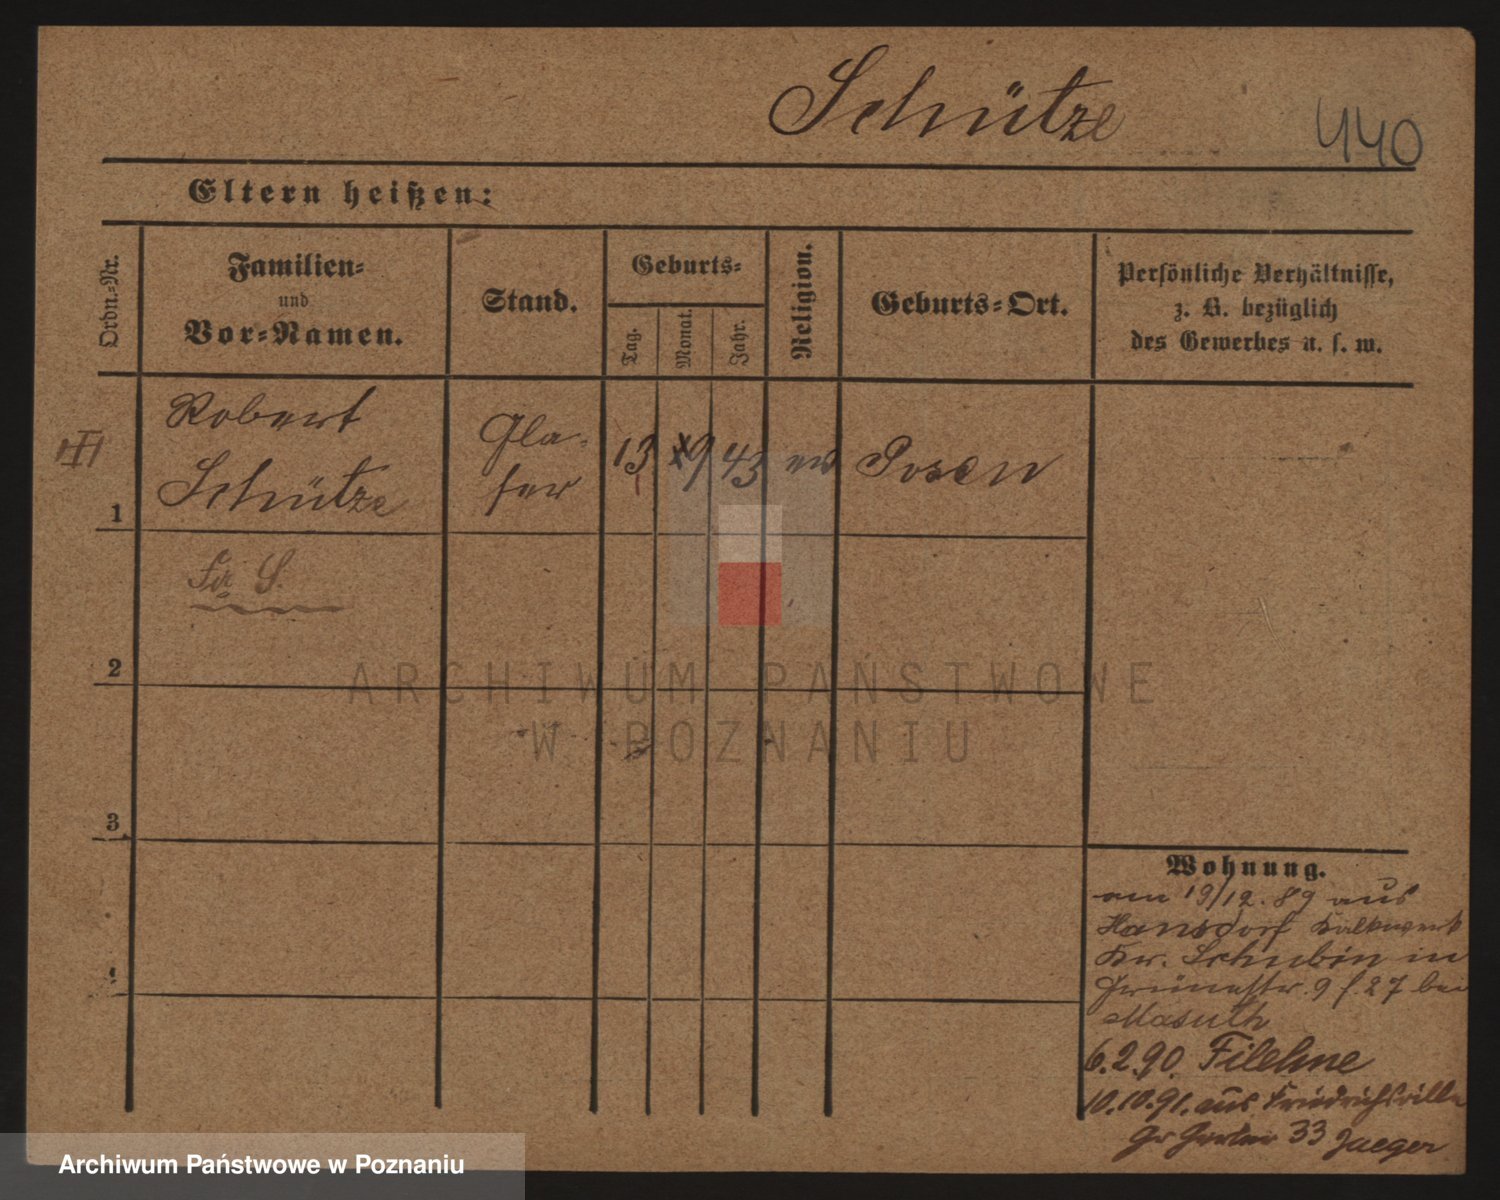 Schütze
440
Eltern heißen:
Ordn.=Nr.
Familien=
und
Vor=Namen.
Stand.
Geburts=
Tag.
Monat.
Jahr.
Religion.
Geburts=Ort.
Persönliche Verhältnisse,
z. B. bezüglich
des Gewerbes u. s. w.
III
1
Robert
Schütze
Gla-
ser
13
9
43
ev
Posen
S.
2
3
4
Wohnung.
am 19/12. 89 aus
Hansdorf Kalkwerk
Kr. Schubin in
Grünestr. 9 b.27 bei
Masuth
6.2.90. Filehne
10.10.91. aus Friedrichsvilla
Gr Gerber 33 Jaeger
ARCHIWUM PAŃSTWOWE
W POZNANIU
Archiwum Państwowe w Poznaniu